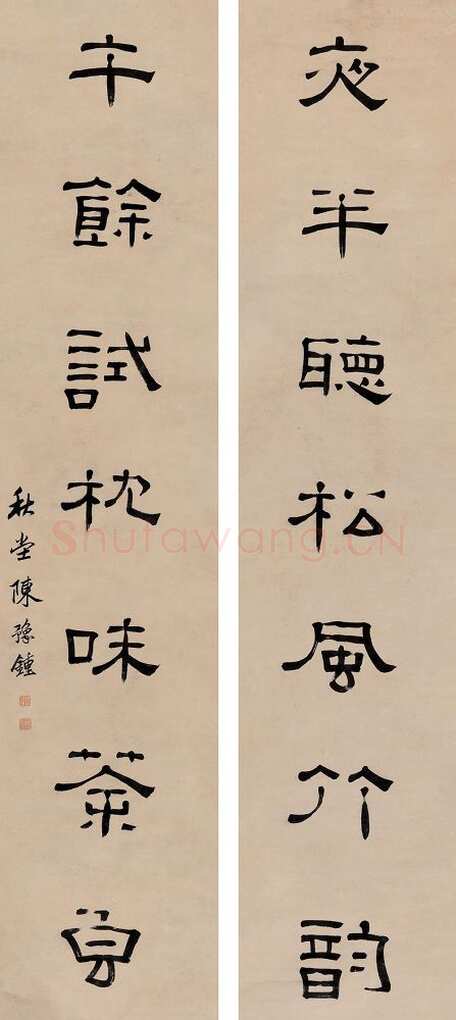 夜半聽松風竹韵
午餘試枕味茶
秋堂陳豫鍾
Shufawang.CN